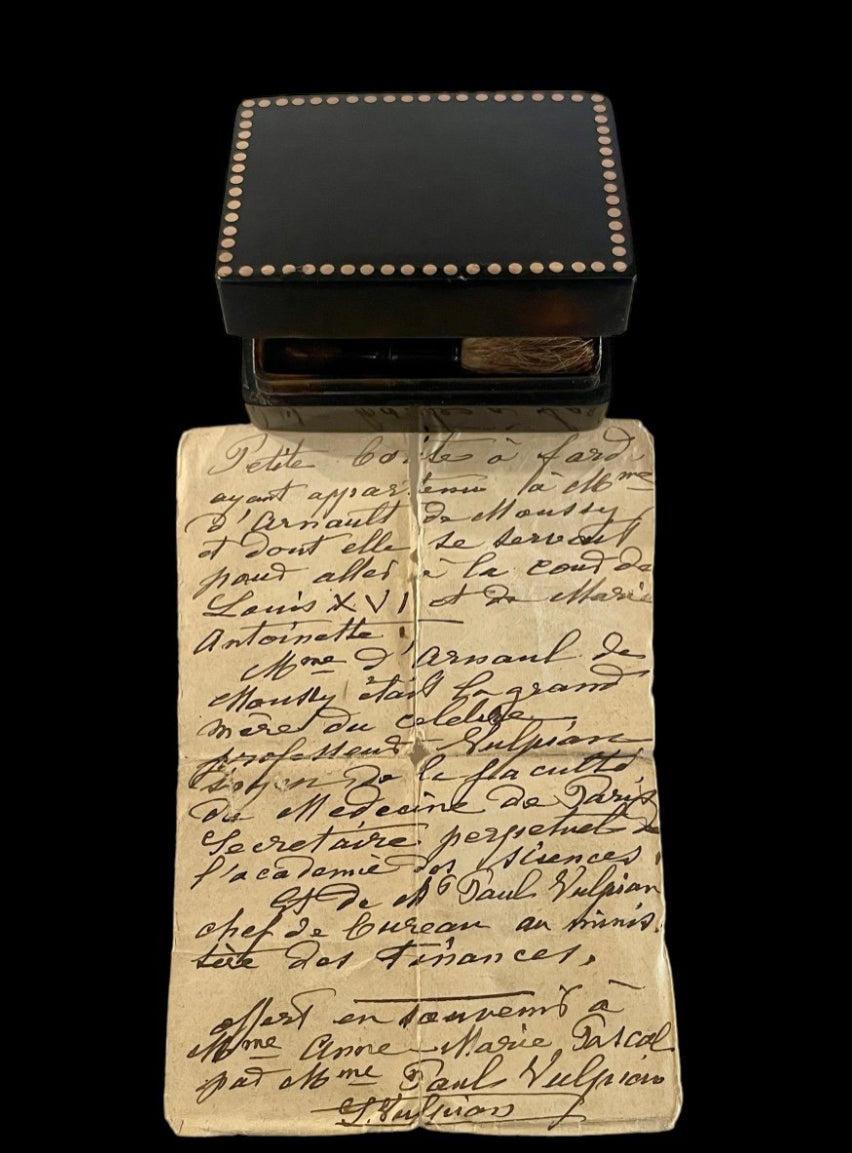 Petite boîte à fard
ayant appartenu à Mme
d'Arnault de Moussy
et dont elle se servait
pour aller à la cour de
Louis XVI et de Marie
Antoinette.
Mme d'Arnaul de
Moussy était la grand
mère du celebre
professeur Vulpian
doyen de la faculté
de Medecine de Paris
Secretaire perpetuel de
l'academie des sciences.
Et de Mr Paul Vulpian
chef de bureau au minis
tère des Finances.
offert en souvenir à
Mme Anne-Marie Pascal
par Mme Paul Vulpian
Vulpian